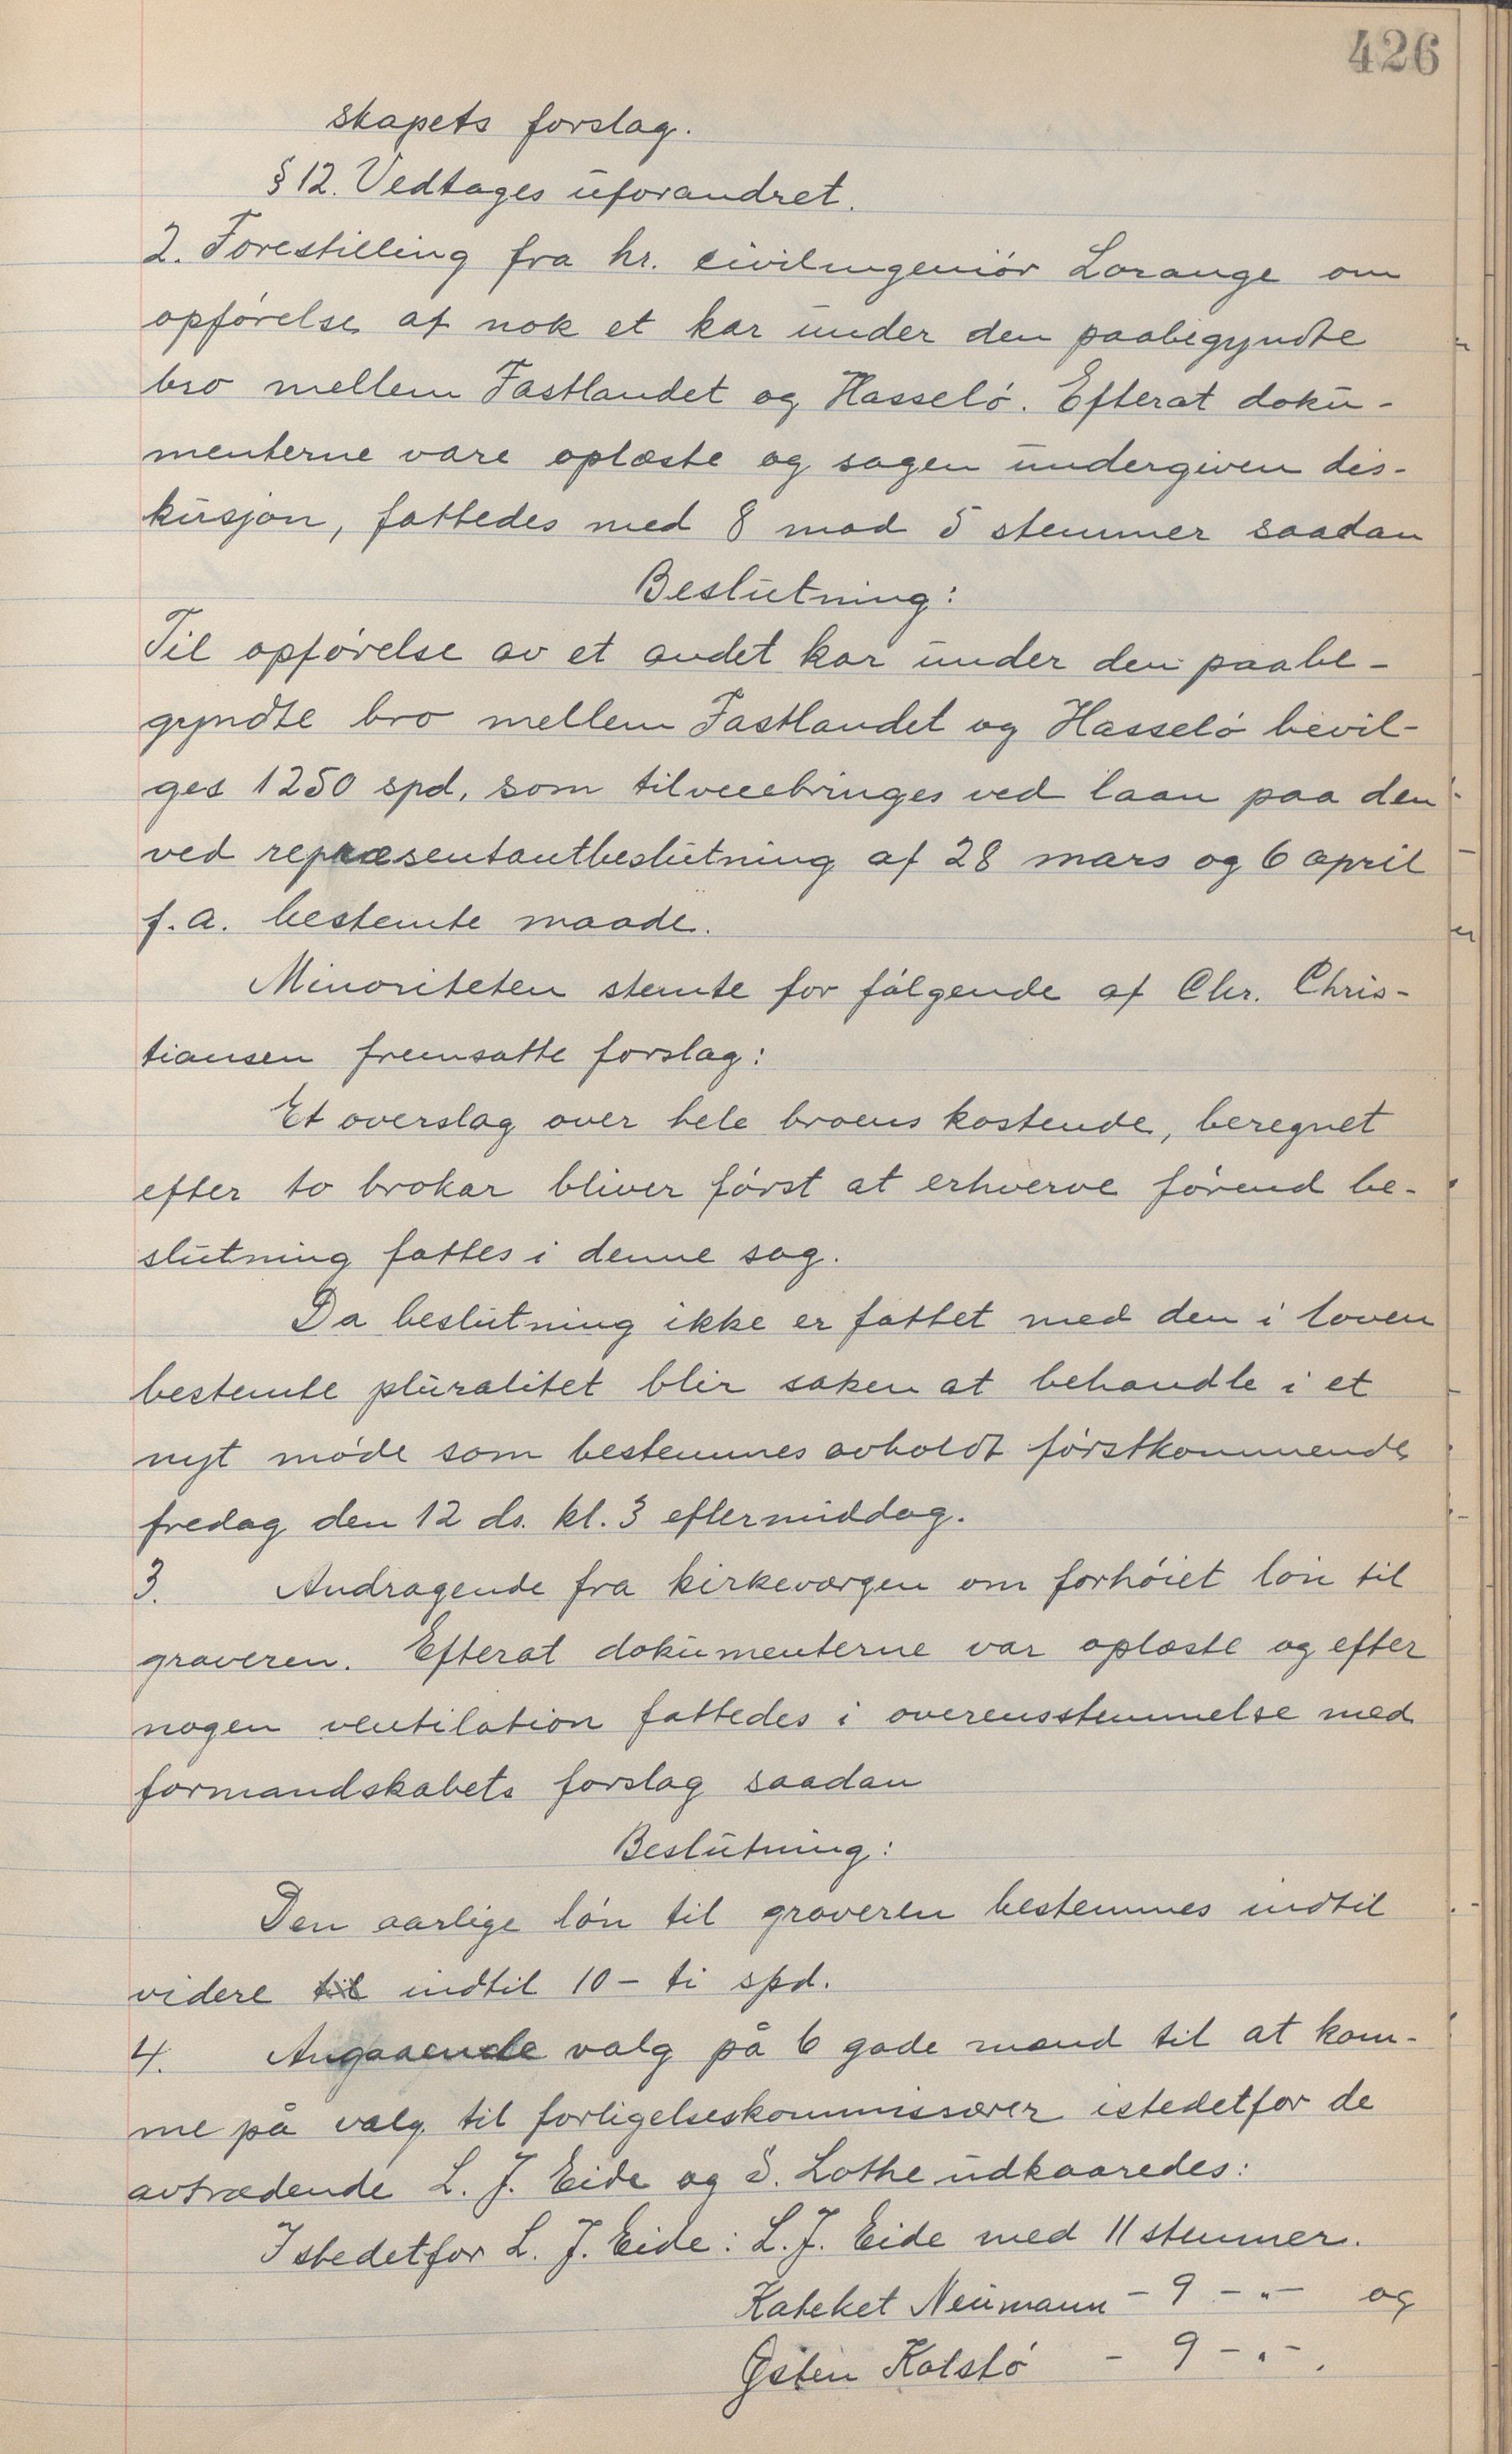 426
skapets forslag.
§ 12. Vedtages uforandret.
2. Forestilling fra hr. civilingeniór Lorange om
opfórelse af nok et kar under den paabegyndte
bro mellem Fastlandet og Hasseló. Efterat doku-
menterne vare oplæste og sagen undergiven dis-
kusjon, fattedes med 8 mod 5 stemmer saadan
Beslutning:
Til opfórelse av et andet kar under den paabe-
gyndte bro mellem Fastlandet og Hasseló bevil-
ges 1250 spd, som tilveiebringes ved laan paa den
ved repræsentantbeslutning af 28 mars og 6 april
f.a. bestemte maade.
Minoriteten stemte for fólgende af Chr. Chris-
tiansen fremsatte forslag:
Et overslag over hele broens kostende, beregnet
efter to brokar bliver fórst at erhverve fórend be-
slutning fattes i denne sag.
Da beslutning ikke er fattet med den i loven
bestemte pluralitet blir saken at behandle i et
nyt móde som bestemmes avholdt fórstkommende
fredag den 12 ds. kl. 3 eftermiddag.
3. Andragende fra kirkeværgen om forhóiet lón til
graveren. Efterat dokumenterne var oplæste og efter
nogen ventilation fattedes i overensstemmelse med
formandskabets forslag saadan
Beslutning:
Den aarlige lón til graveren bestemmes indtil
videre til indtil 10 - ti spd.
4. Angaaende valg på 6 gode mænd til at kom-
me på valg til forligelseskommissærer istedetfor de
avtrædende L. J. Eide og S. Lothe udkaaredes:
Istedetfor L. J. Eide: L. J. Eide med 11 stemmer.
Kateket Neumann - 9 - " - og
Østen Kolstó - 9 - " - .